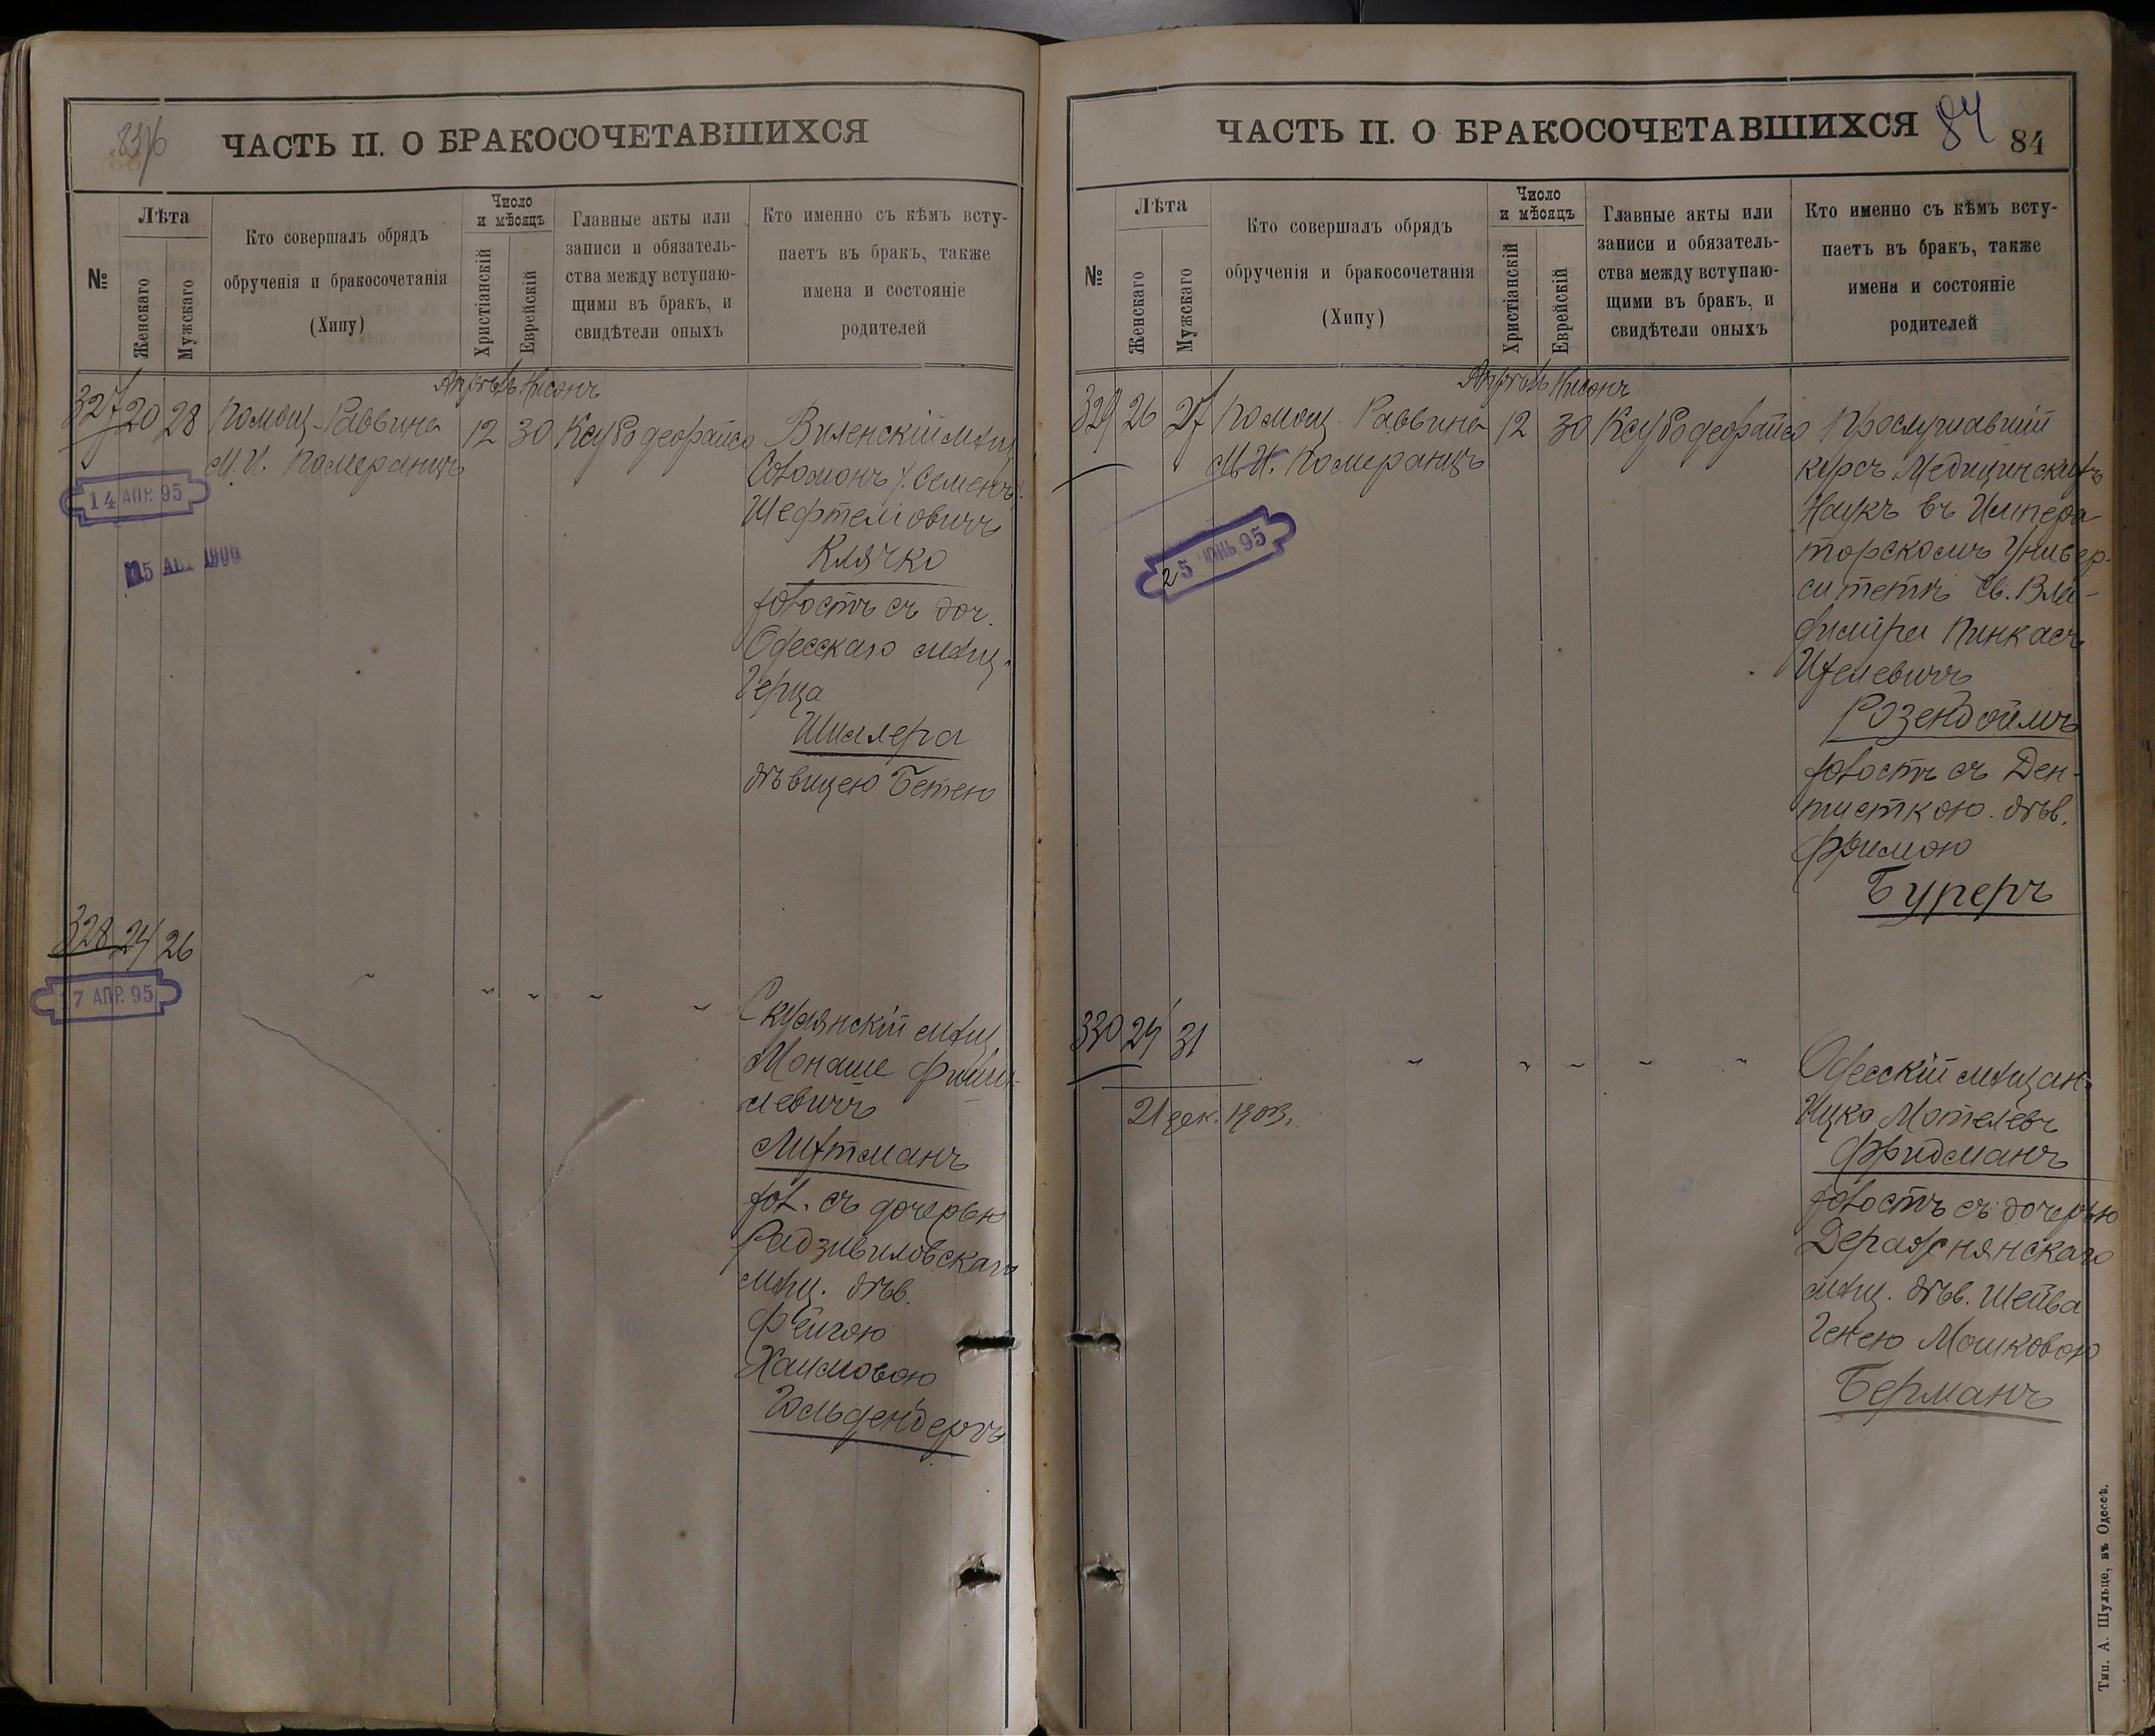 83/б
ЧАСТЬ II. О БРАКОСОЧЕТАВШИХСЯ
№
Лѣта
Женскаго
Мужскаго
Кто совершалъ обрядъ
обрученія и бракосочетанія
(Хипу)
Число
и мѣсяцъ
Христіанскій
Еврейскій
Главные акты или
записи и обязатель-
ства между вступаю-
щими въ бракъ, и
свидѣтели оныхъ
Кто именно съ кѣмъ всту-
паетъ въ бракъ, также
имена и состояніе
родителей
Апрѣль Нисонъ
327 20 28 Помощ. Раввина 12 30 Ксубо деорайсо Виленскій мѣщ.
М. И. Померанцъ Соломонъ /: Семенъ :/
14 АПР. 95
Шефтеліовичъ
Клячко
холостъ съ доч.
Одесскаго мѣщ.
Герца
Шиллера
дѣвицею Бетею
328 24 26
7 АПР. 95
Скулянскій мѣщ.
Монаше Фише-
левичъ
Литманъ
хол. съ дочерью
Радзивиловскаго
мѣщ. дѣв.
Фейгою
Хаимовою
Гольденбергъ
ЧАСТЬ II. О БРАКОСОЧЕТАВШИХСЯ
84
84
№
Лѣта
Женскаго
Мужскаго
Кто совершалъ обрядъ
обрученія и бракосочетанія
(Хипу)
Число
и мѣсяцъ
Христіанскій
Еврейскій
Главные акты или
записи и обязатель-
ства между вступаю-
щими въ бракъ, и
свидѣтели оныхъ
Кто именно съ кѣмъ всту-
паетъ въ бракъ, также
имена и состояніе
родителей
Апрѣль Нисонъ
329 26 27 Помощ. Раввина 12 30 Ксубо деорайсо Прослушавшій
М. И. Померанцъ курсъ Медицинскихъ
Наукъ въ Импера-
25 ІЮНЬ 95
торскомъ Универ-
ситетѣ Св. Вла-
диміра Пинкасъ
Ицелевичъ
Розенбоймъ
холостъ съ Ден-
тисткою дѣв.
Фримою
Буреръ
330 24 31
21 дек. 1903.
Одесскій мѣщан.
Ицко Мотелевъ
Фридманъ
холостъ съ дочерью
Деражнянскаго
мѣщ. дѣв. Шейва
Генею Мошковою
Берманъ
Тип. А. Шульце, въ Одессѣ.